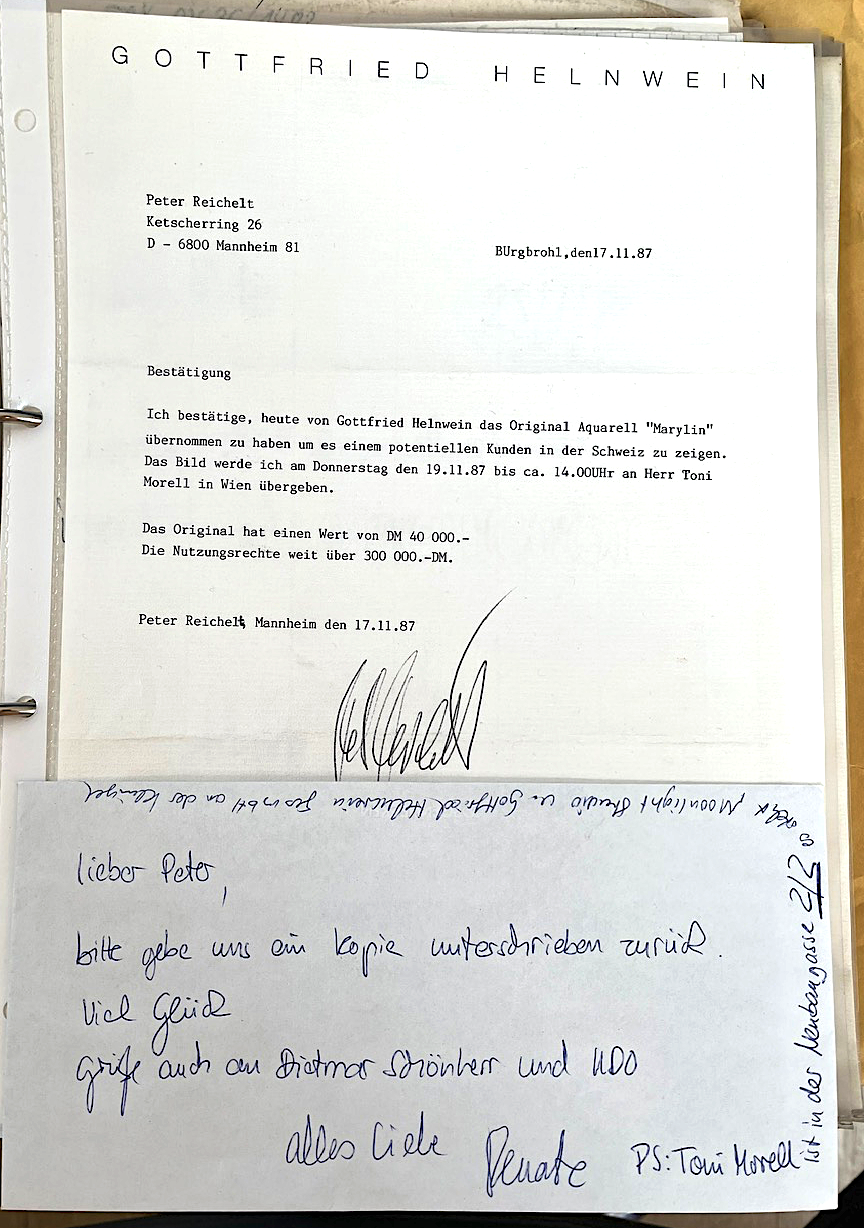 GOTTFRIED HELNWEIN
Peter Reichelt
Ketscherring 26
D - 6800 Mannheim 81
BUrgbrohl,den17.11.87
Bestätigung
Ich bestätige, heute von Gottfried Helnwein das Original Aquarell "Marylin"
übernommen zu haben um es einem potentiellen Kunden in der Schweiz zu zeigen.
Das Bild werde ich am Donnerstag den 19.11.87 bis ca. 14.00UHr an Herr Toni
Morell in Wien übergeben.
Das Original hat einen Wert von DM 40 000.-
Die Nutzungsrechte weit über 300 000.-DM.
Peter Reichelt, Mannheim den 17.11.87
lieber Peter,
bitte gebe uns ein Kopie unterschrieben zurück.
Viel Glück
Grüße auch an Dietmar Schönherr und UDO
alles Liebe
Renate
PS: Toni Morell
ist in der Neubaugasse 2/2
Moonlight Studio u. Gottfried Helnwein GesmbH an der Klingel